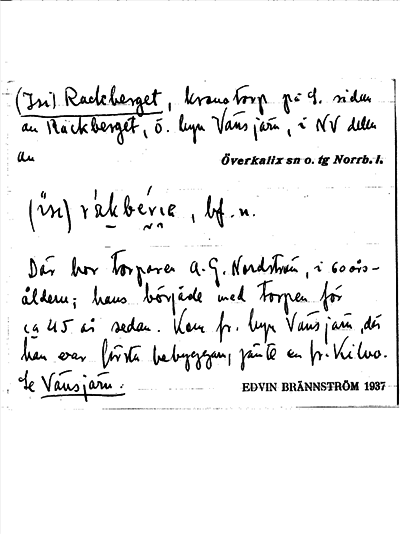 (Isi) Rackberget, kronotorp på s. sidan
av Räckberget, ö. byn Vänsjärn, i NV delen
av Överkalix sn o. tg Norrb. l.
(ìsi) rákbérıe, bf. n.
Där bor torparen A.G. Nordström, i 60 års-
åldern; hans började med torpen för
ca 45 år sedan. Kom fr. byn Vänsjärn, där
han var första bebyggan, jämte en fr. Kilvo.
Se Vänsjärn.
EDVIN BRÄNNSTRÖM 1937